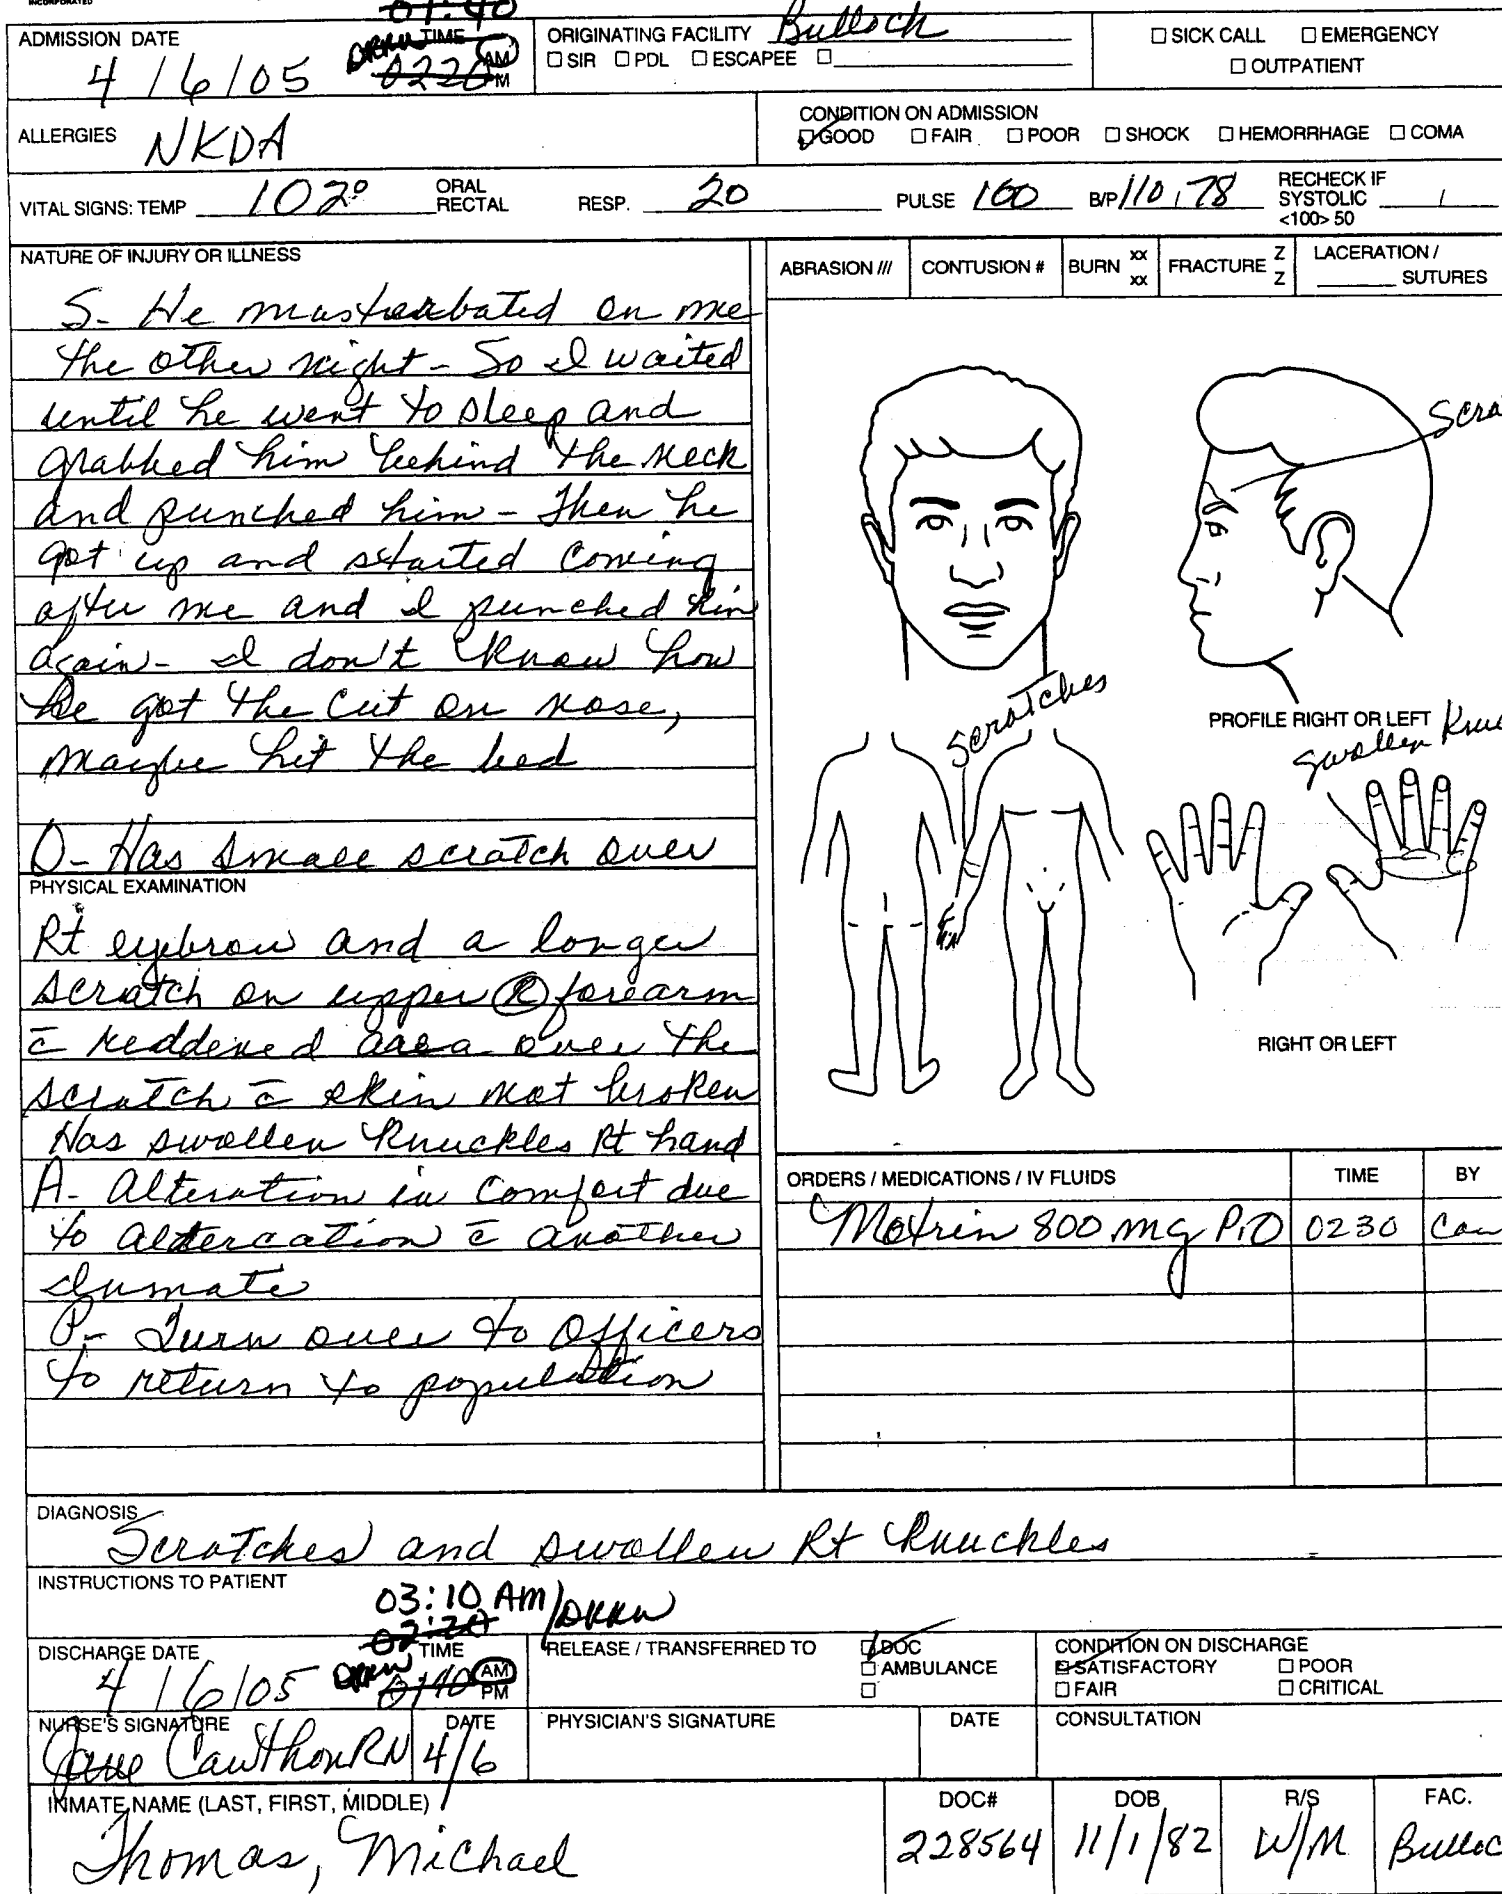 INCORPORATED
01:40
ADMISSION DATE
4/6/05
TIME
0220 AM
PM
ORIGINATING FACILITY Bullock
☐ SIR ☐ PDL ☐ ESCAPEE ☐
☐ SICK CALL ☐ EMERGENCY
☐ OUTPATIENT
ALLERGIES NKDA
CONDITION ON ADMISSION
☑ GOOD ☐ FAIR ☐ POOR ☐ SHOCK ☐ HEMORRHAGE ☐ COMA
VITAL SIGNS: TEMP 102° ORAL RECTAL RESP. 20 PULSE 100 B/P 110/78 RECHECK IF SYSTOLIC <100> 50 /
NATURE OF INJURY OR ILLNESS
S- He masterbated on me
the other night - So I waited
until he went to sleep and
grabbed him behind the neck
and punched him - Then he
got up and started coming
after me and I punched him
again - I don't know how
he got the cut on nose,
maybe hit the bed
O- Has small scratch over
PHYSICAL EXAMINATION
Rt eyebrow and a longer
scratch on upper Ⓡ forearm
c̄ reddened area over the
scratch c̄ skin not broken
Has swollen knuckles Rt hand
A- Alteration in comfort due
to altercation c̄ another
inmate
P- Turn over to Officers
to return to population
ABRASION /// CONTUSION # BURN xx xx FRACTURE Z Z LACERATION / SUTURES
Scra
Scratches
PROFILE RIGHT OR LEFT
swollen Knu
RIGHT OR LEFT
ORDERS / MEDICATIONS / IV FLUIDS TIME BY
Motrin 800 mg P.O 0230 Caw
DIAGNOSIS
Scratches and swollen Rt knuckles
INSTRUCTIONS TO PATIENT
03:10 AM/DRRN
02:20
DISCHARGE DATE
4/6/05
TIME
0140 AM
PM
RELEASE / TRANSFERRED TO ☑ DOC
☐ AMBULANCE
☐
CONDITION ON DISCHARGE
☑ SATISFACTORY ☐ POOR
☐ FAIR ☐ CRITICAL
NURSE'S SIGNATURE DATE PHYSICIAN'S SIGNATURE DATE CONSULTATION
Jane Cawthon RN 4/6
INMATE NAME (LAST, FIRST, MIDDLE) DOC# DOB R/S FAC.
Thomas, Michael 228564 11/1/82 W/M Bulloc